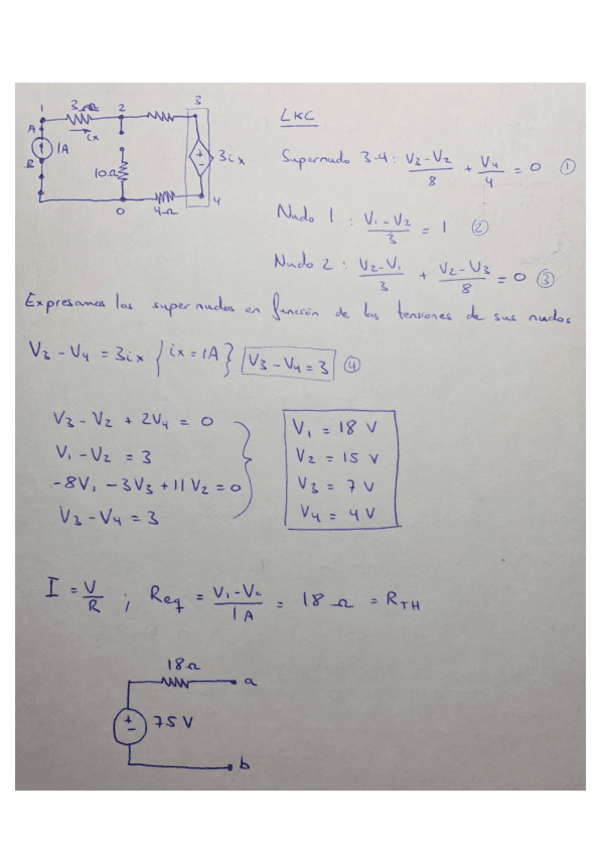 1 3Ω 2 3
A ix
1A 3ix
B 10Ω
0 4Ω 4
LKC
Supernudo 3-4: (V3-V2)/8 + V4/4 = 0 ①
Nudo 1 : (V1-V2)/3 = 1 ②
Nudo 2 : (V2-V1)/3 + (V2-V3)/8 = 0 ③
Expresamos los supernudos en función de las tensiones de sus nudos
V3 - V4 = 3ix { ix = 1A } V3 - V4 = 3 ④
V3 - V2 + 2V4 = 0
V1 - V2 = 3
-8V1 - 3V3 + 11V2 = 0
V3 - V4 = 3
V1 = 18 V
V2 = 15 V
V3 = 7 V
V4 = 4 V
I = V/R ; Req = (V1-V0)/1A = 18 Ω = RTH
18Ω
a
+ - 75 V
b